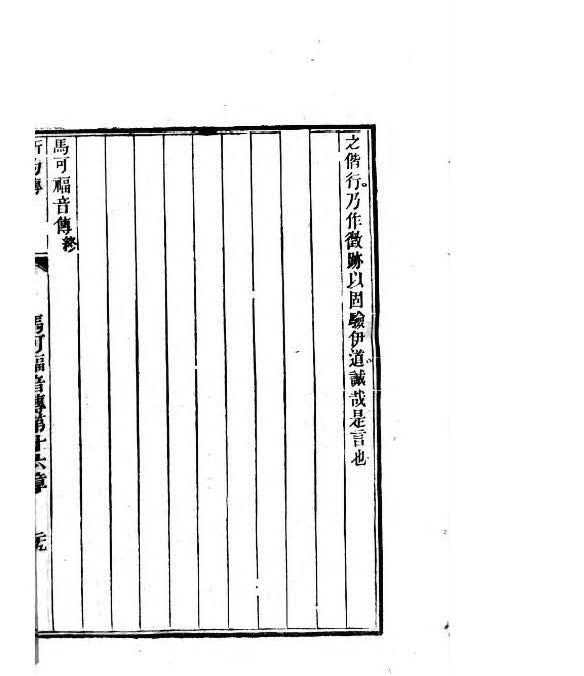 之偕行。乃作徵跡以固驗伊道。誠哉是言也
馬可福音傳終
馬可福音傳第十六章